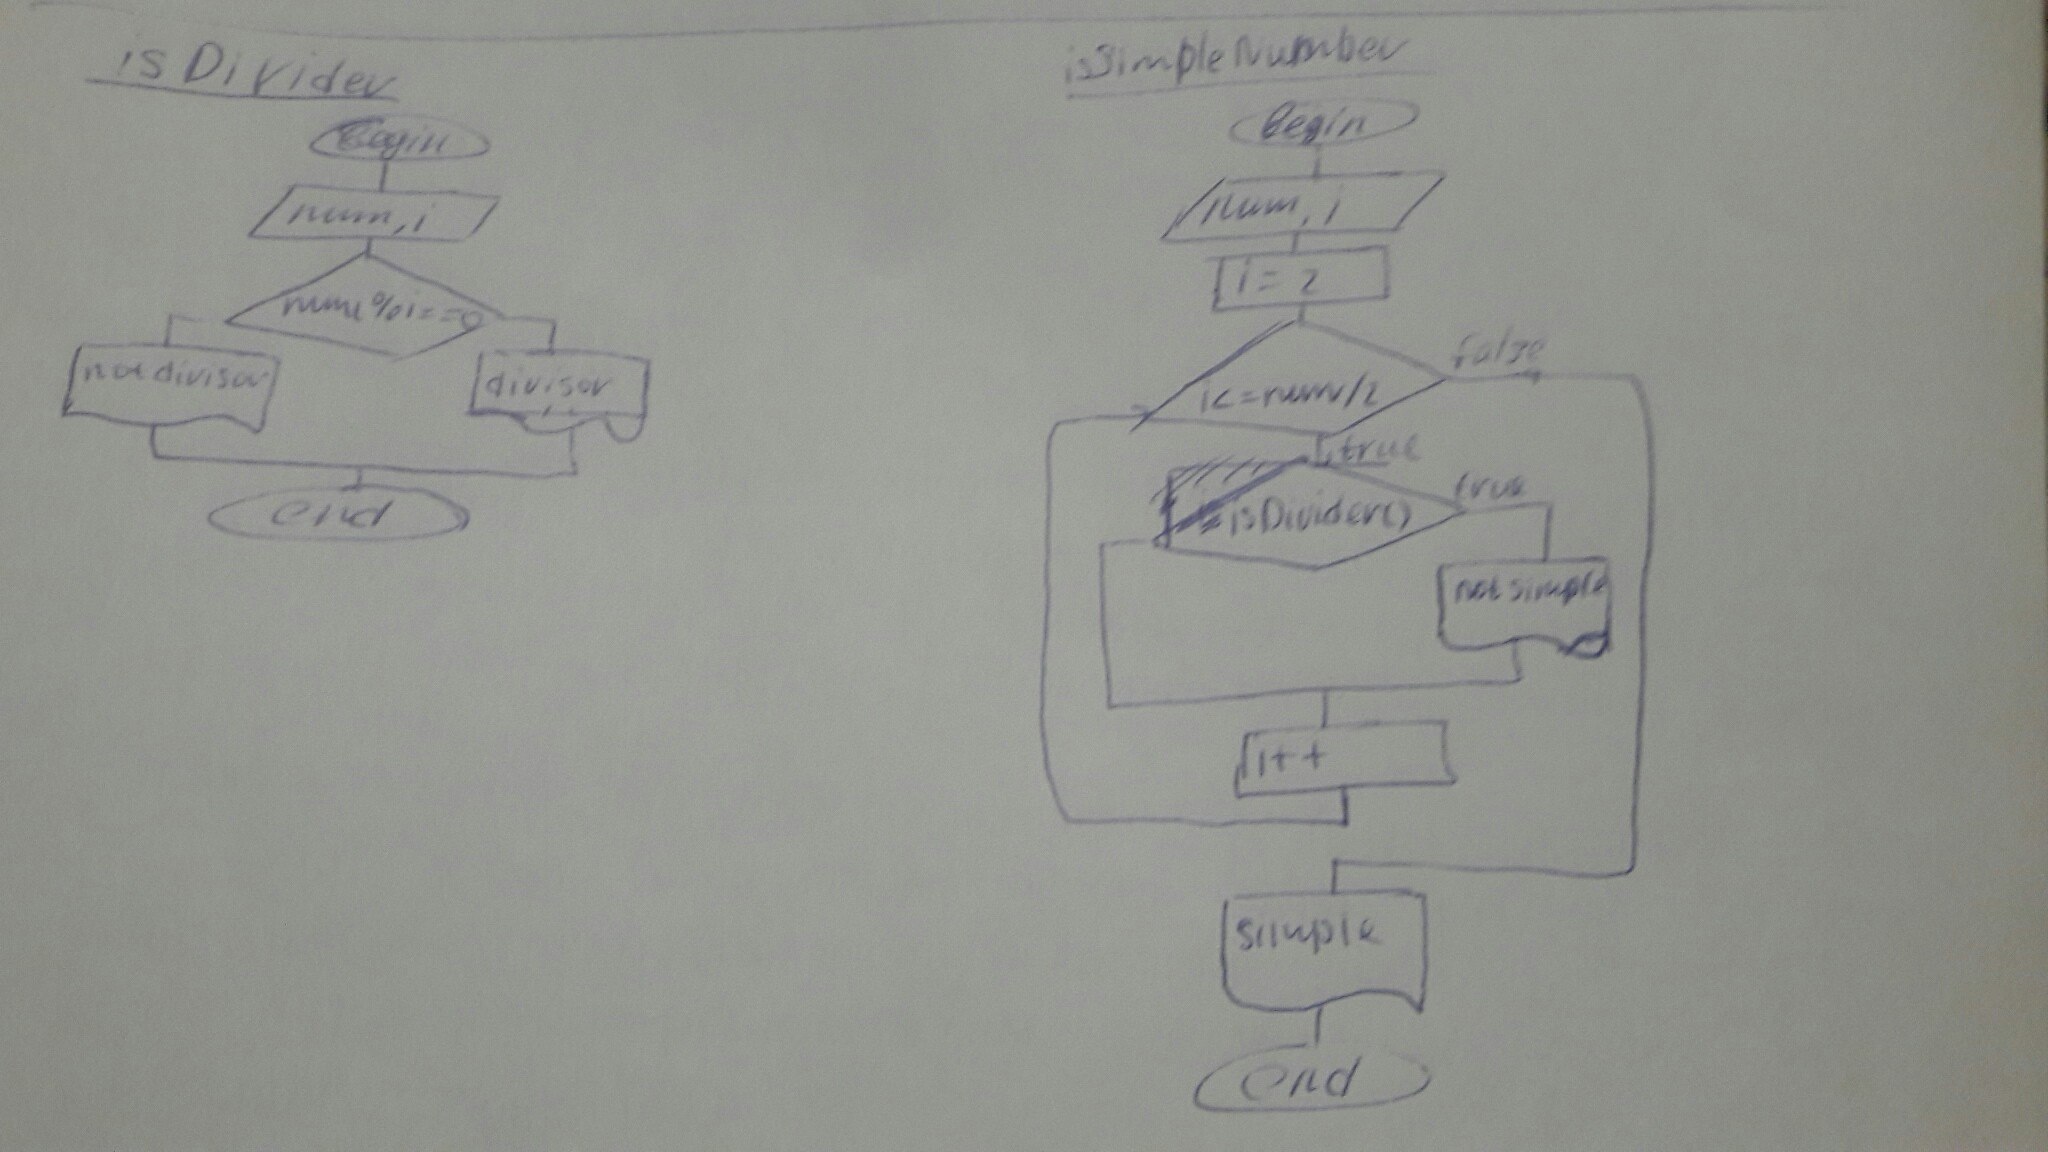 isDivider
Begin
num, i
num%i==0
not divisor
divisor
end
isSimpleNumber
Begin
num, i
i = 2
i<=num/2
false
true
isDivider()
true
not simple
i++
simple
end